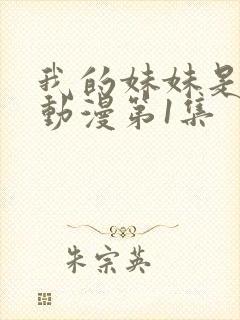 我的妹妹是
動漫第1集
朱宗英